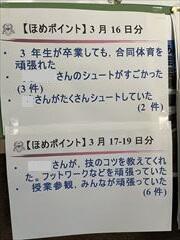 【ほめポイント】3月16日分
・ 3年生が卒業しても,合同体育を
頑張れた
・ さんのシュートがすごかった
(3件)
・ さんがたくさんシュートしていた
(2件)
【ほめポイント】3月17-19日分
・ さんが,技のコツを教えてくれ
た。フットワークなどを頑張っていた
・ 授業参観,みんなが頑張っていた
(6件)